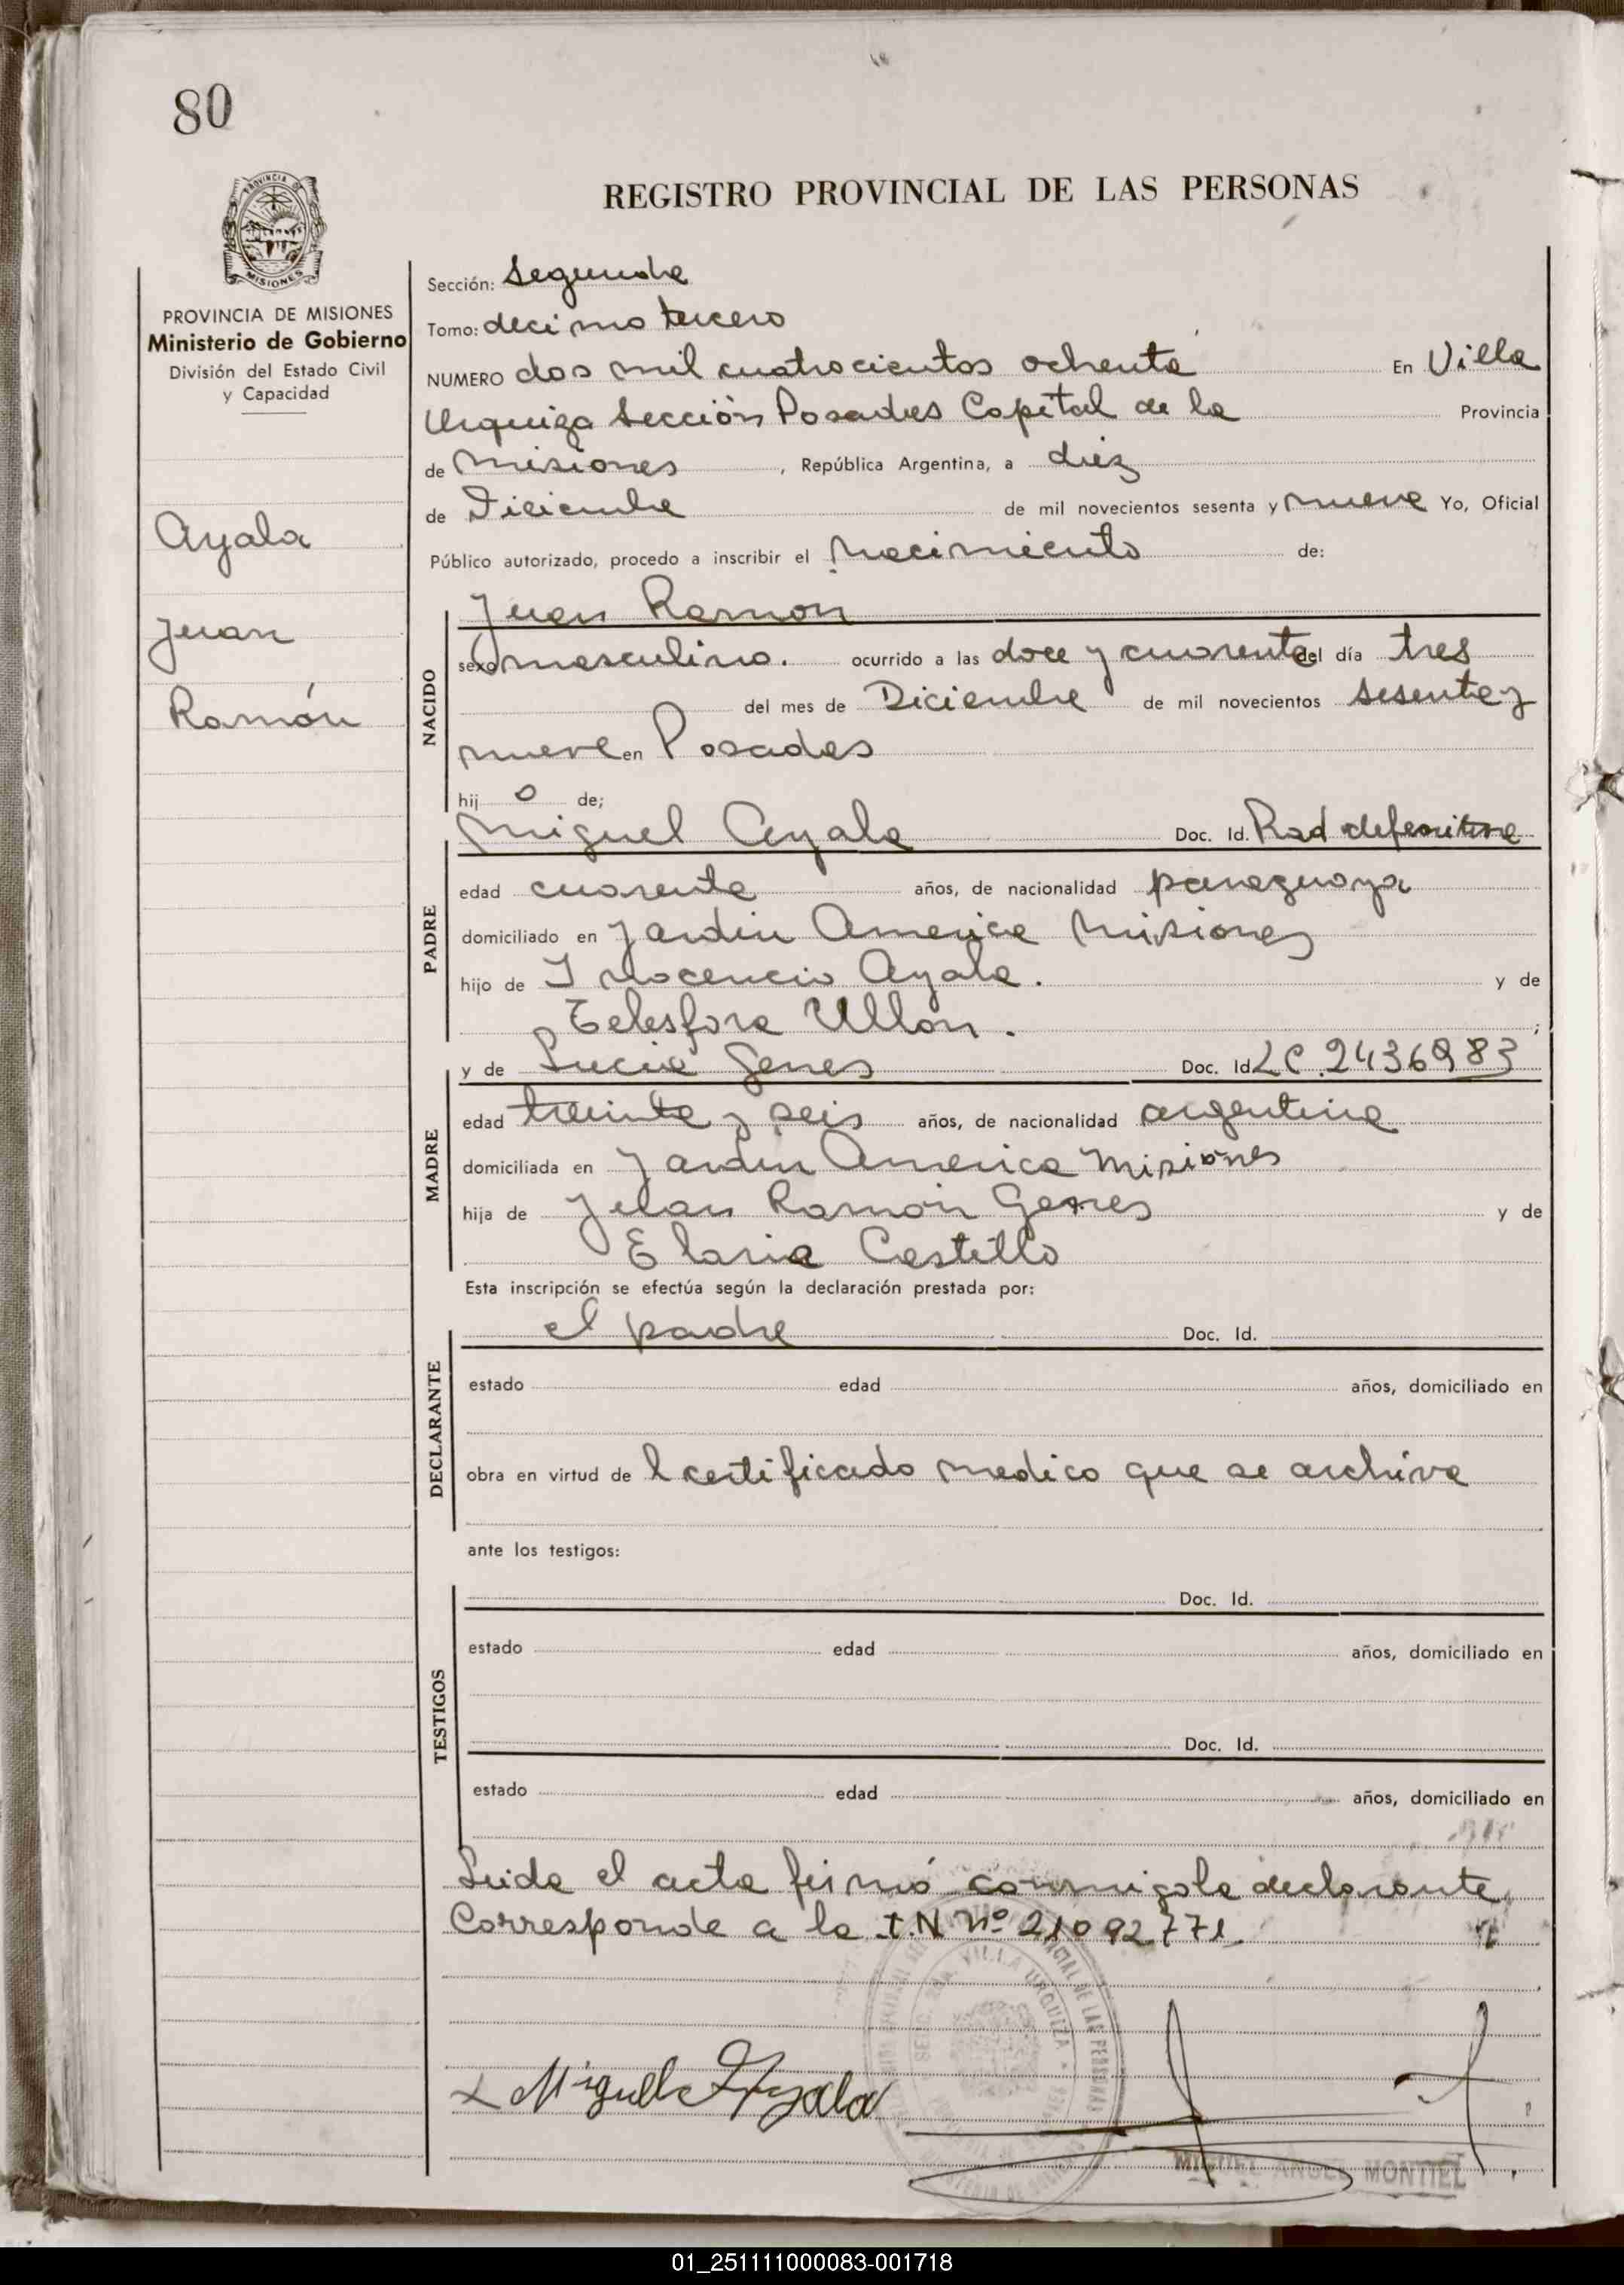 80
PROVINCIA DE
MISIONES
REGISTRO PROVINCIAL DE LAS PERSONAS
PROVINCIA DE MISIONES
Ministerio de Gobierno
División del Estado Civil
y Capacidad
Ayala
Juan
Ramón
Sección: Segunda
Tomo: decimo tercero
NUMERO dos mil cuatrocientos ochenta En Villa
Urquiza Sección Posadas Capital de la Provincia
de Misiones, República Argentina, a diez
de Diciembre de mil novecientos sesenta y nueve Yo, Oficial
Público autorizado, procedo a inscribir el Nacimiento de:
NACIDO
Juan Ramon
sexo masculino. ocurrido a las doce y cuarenta del día tres
del mes de Diciembre de mil novecientos sesenta y
nueve en Posadas
hij o de;
PADRE
Miguel Ayala Doc. Id. Rad definitiva
edad cuarenta años, de nacionalidad paraguaya
domiciliado en Jardin America Misiones
hijo de Inocencio Ayala. y de
Telesfora Ullon. ;
MADRE
y de Lucia Genes Doc. Id LC.2436983
edad treinta y seis años, de nacionalidad argentina
domiciliada en Jardin America Misiones
hija de Juan Ramon Genes y de
Elaria Castillo
Esta inscripción se efectúa según la declaración prestada por:
DECLARANTE
el padre Doc. Id.
estado edad años, domiciliado en
obra en virtud de l certificado medico que se archiva
ante los testigos:
TESTIGOS
Doc. Id.
estado edad años, domiciliado en
Doc. Id.
estado edad años, domiciliado en
Leida el acta firmó conmigo la declarante
Corresponde a la t.N nº 21092771.
SECC. 2DA. VILLA URQUIZA
CIAL DE LAS PERSONAS
x Miguel Ayala
MIGUEL ANGEL MONTIEL
01_251111000083-001718